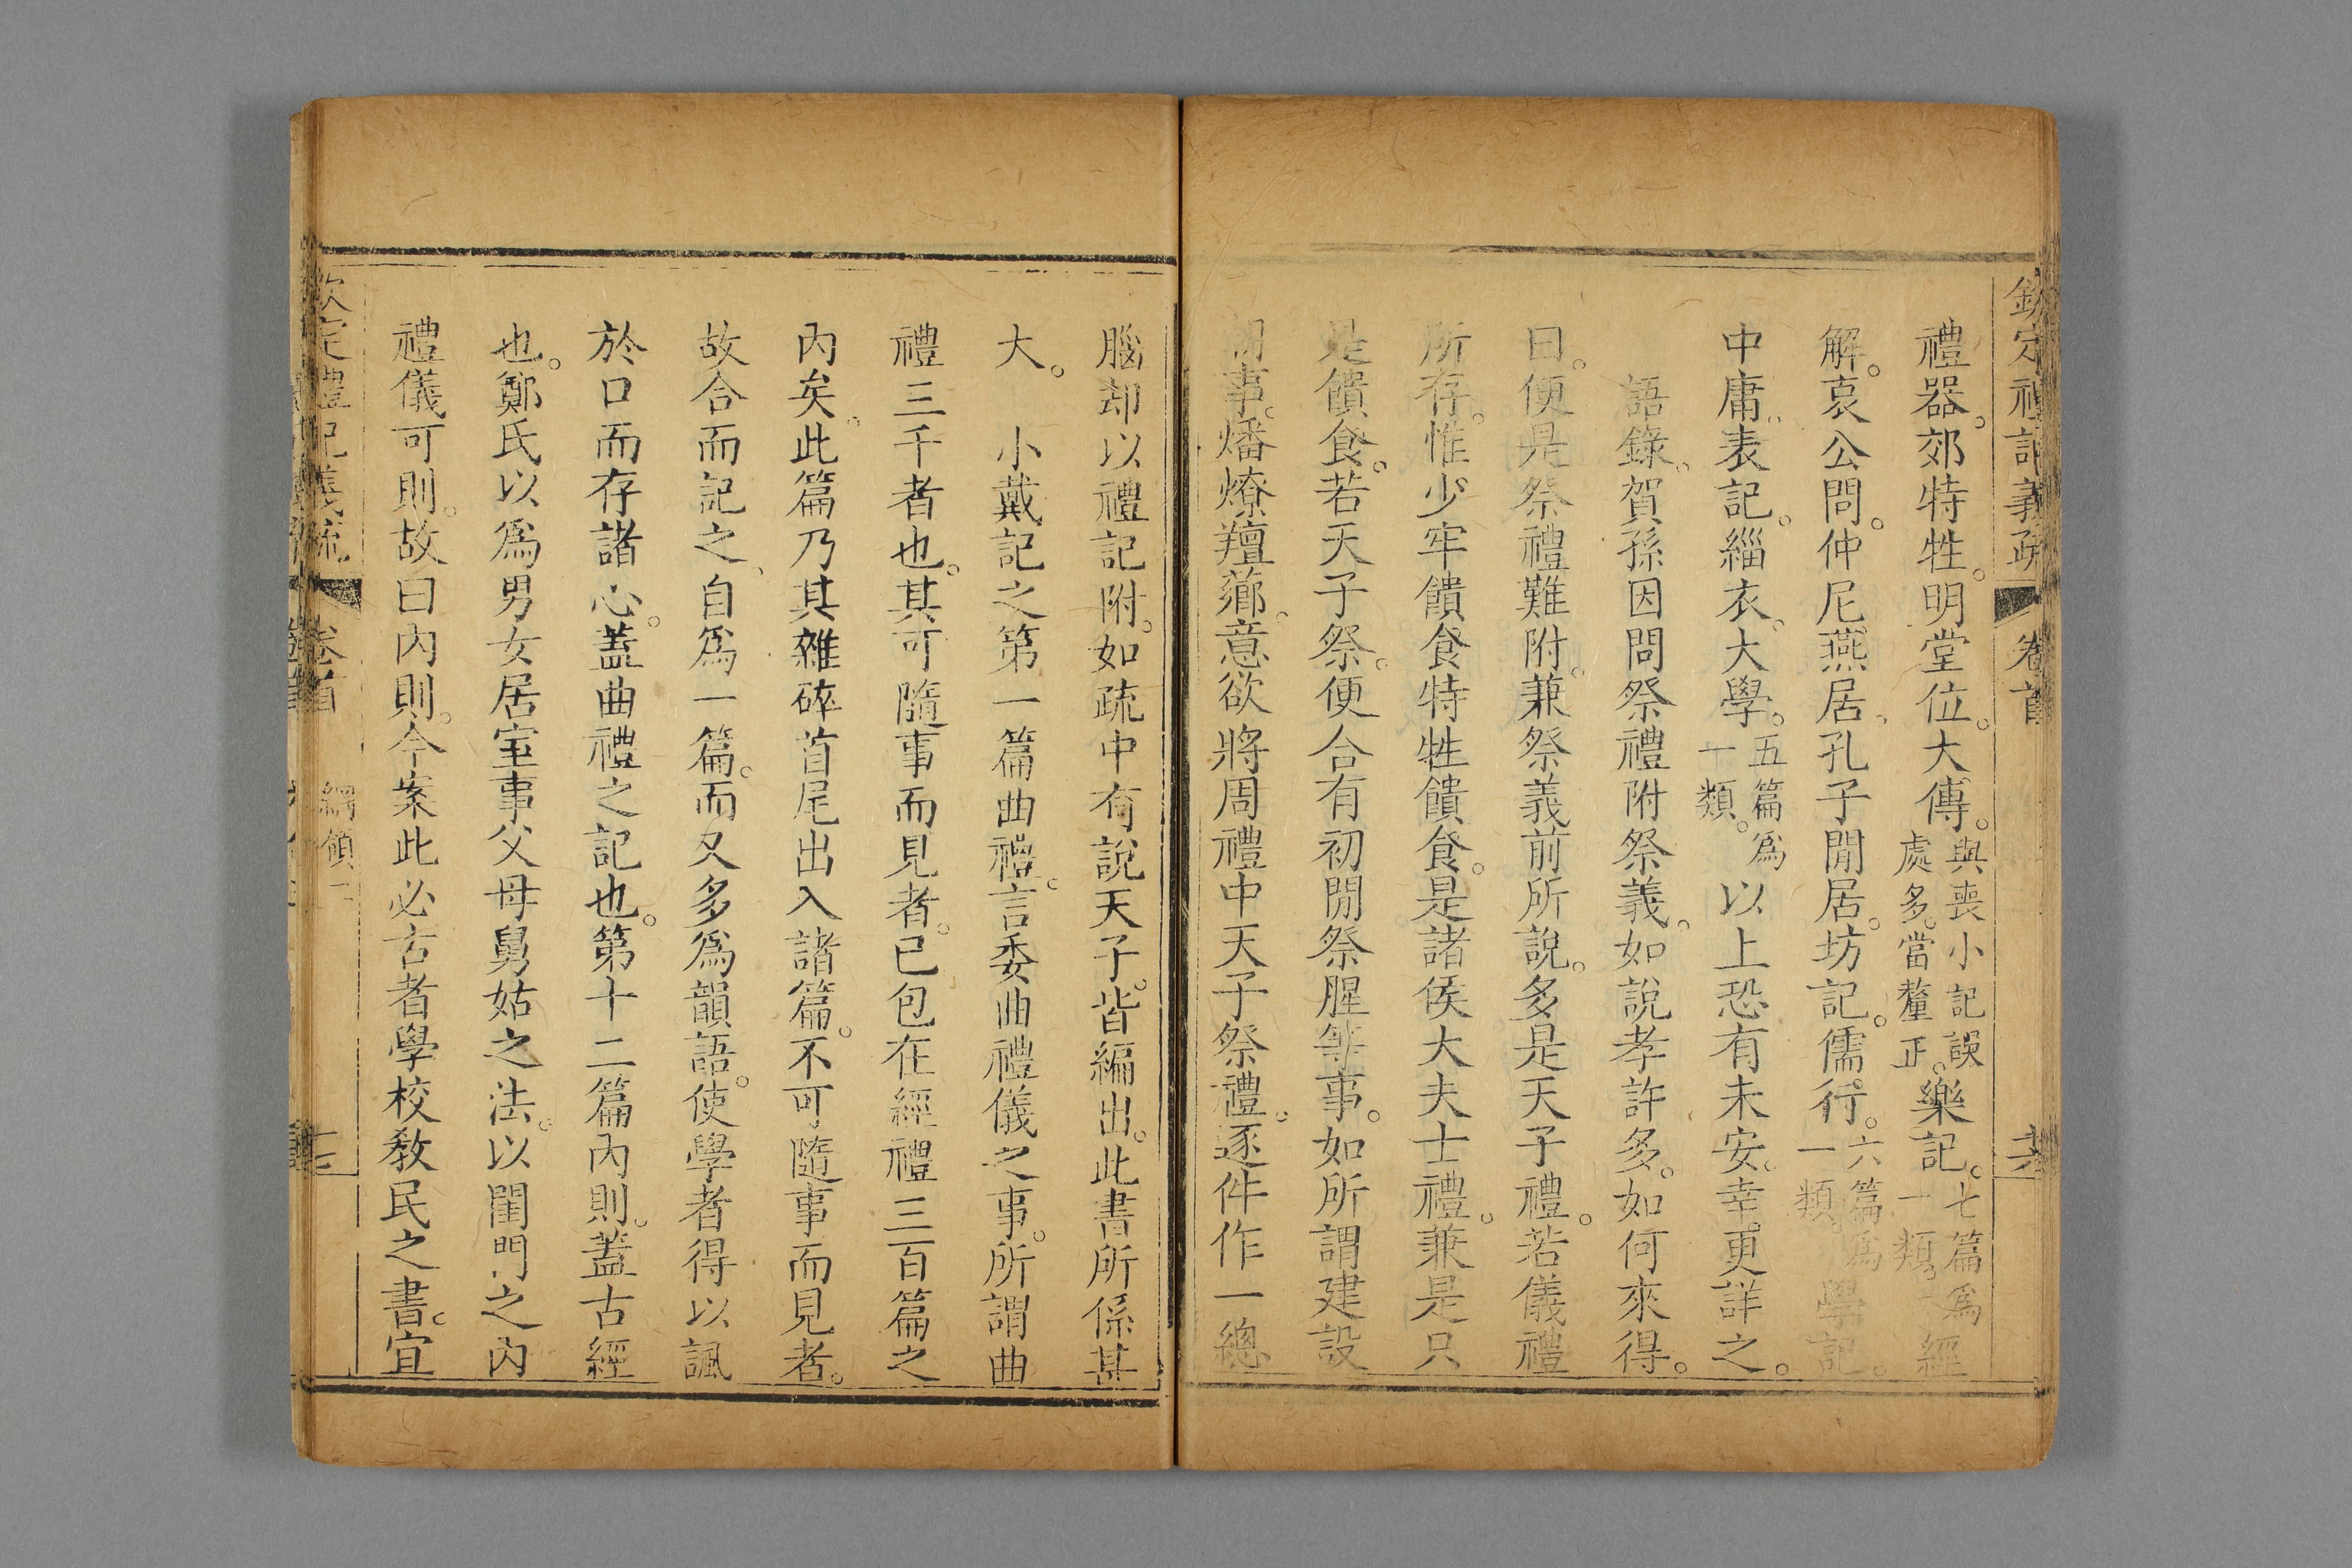 欽定禮記義疏 卷首
禮器。郊特牲。明堂位。大傳。與喪小記誤處多。當釐正。樂記。七篇為一類。經
解。哀公問。仲尼燕居。孔子閒居。坊記。儒行。六篇為一類。學記。
中庸。表記。緇衣。大學。五篇為一類。以上恐有未安。幸更詳之。
語錄。賀孫因問祭禮附祭義。如說孝許多。如何來得。
曰。便是祭禮難附。兼祭義前所說。多是天子禮。若儀禮
所存。惟少牢饋食特牲饋食。是諸侯大夫士禮。兼是只
是饋食。若天子祭。便合有初閒祭腥等事。如所謂建設
朝事。燔燎羶薌。意欲將周禮中天子祭禮。逐件作一總
腦却以禮記附。如疏中有說天子。皆編出。此書所係甚
大。 小戴記之第一篇曲禮。言委曲禮儀之事。所謂曲
禮三千者也。其可隨事而見者。已包在經禮三百篇之
內矣。此篇乃其雜碎首尾出入諸篇。不可隨事而見者。
故合而記之、自爲一篇。而又多爲韻語。使學者得以諷
於口而存諸心。蓋曲禮之記也。第十二篇內則。蓋古經
也。鄭氏以爲男女居室事父母舅姑之法。以閨門之內
禮儀可則。故曰內則。今案此必古者學校教民之書。宜
欽定禮記義疏 卷首 綱領二